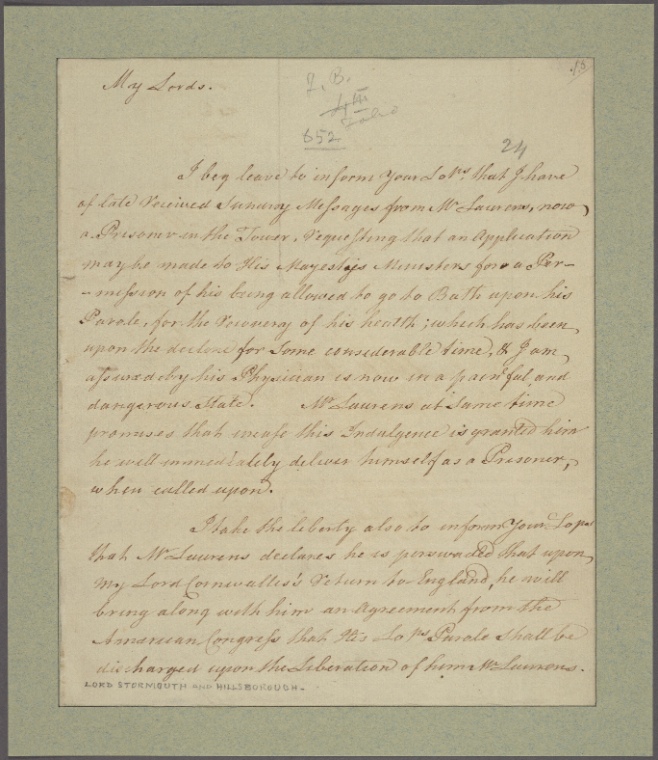 My Lords.
652
24
I beg leave to inform Your Lo.ps that I have
of late Received Sundry Messages from Mr Laurens, now
a Prisoner in the Tower, requesting that an Application
may be made to His Majesty's Ministers for a Per-
-mission of his being allowed to go to Bath upon his
Parole, for the Recovery of his health; which has been
upon the decline for Some considerable time, & I am
assured by his Physician is now in a painful and
dangerous State. Mr Laurens at Same time
promises that incase this Indulgence is granted him
he will immediately deliver himself as a Prisoner,
when called upon.
I take the liberty also to inform Your Lops
that Mr Laurens declares he is perswaded that upon
My Lord Cornwallis's Return to England, he will
bring along with him an Agreement from the
American Congress that His Lo.ps Parole shall be
discharged upon the Liberation of him Mr Laurens.
LORD STORMOUTH AND HILLSBOROUGH.